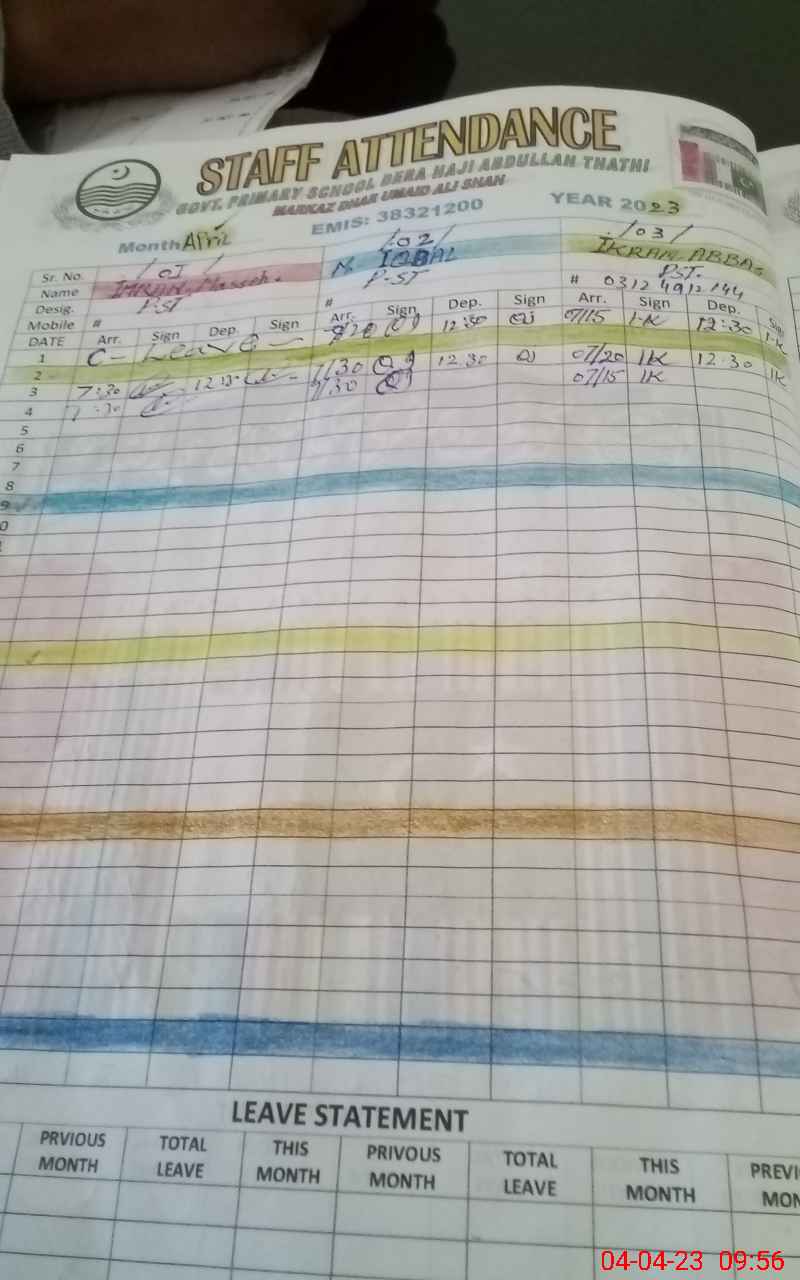 STAFF ATTENDANCE
GOVT. PRIMARY SCHOOL DERA HAJI ABDULLAH THATHI
MARKAZ DHAR UMAID ALI SHAH
EMIS: 38321200
YEAR 2023
Month April
Sr. No. / 01 / / 02 / / 03 /
Name IMRAN M. IQBAL IKRAM ABBAS
Desig. P.ST P-ST PST.
Mobile # # # 0312 4912144
DATE Arr. Sign Dep. Sign Arr. Sign Dep. Sign Arr. Sign Dep. Sign
1 C- Leave - 12:30 07/15 I-K 12:30 I-K
2
3 7:30 7/30 12.30 07/20 IK 12.30 IK
4 7:30 7/30 07/15 IK
5
6
7
8
9
0
LEAVE STATEMENT
PRVIOUS MONTH TOTAL LEAVE THIS MONTH PRIVOUS MONTH TOTAL LEAVE THIS MONTH PREVI MON
04-04-23 09:56